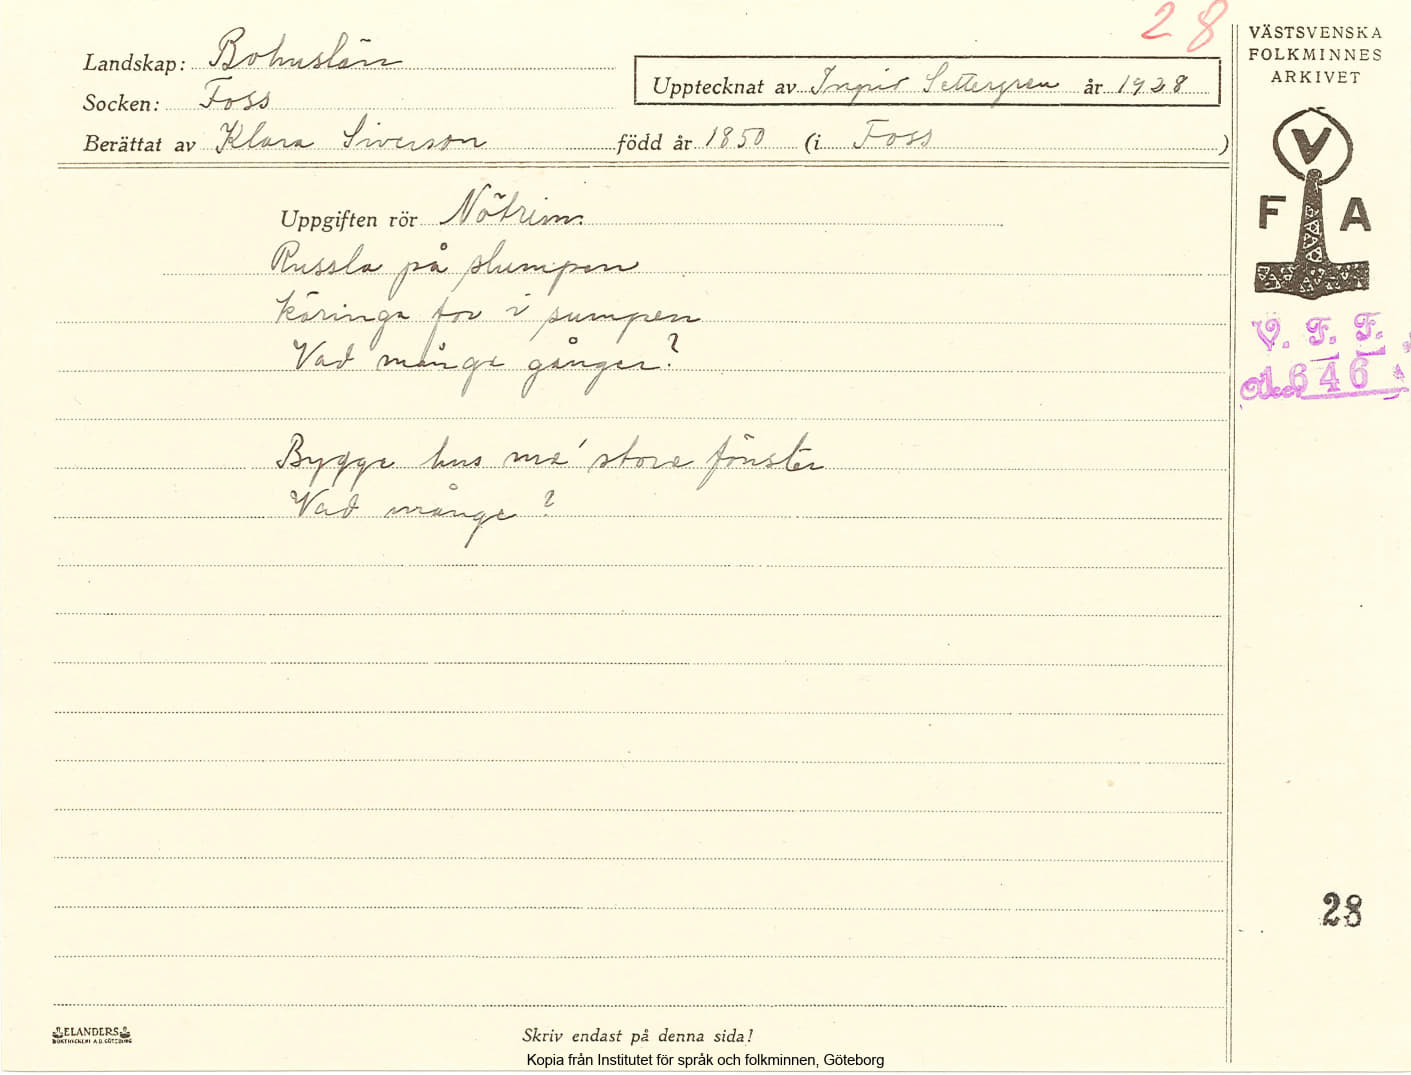 28
Landskap: Bohuslän
Upptecknat av Ingrid Settergren år 1928
Socken: Foss
Berättat av Klara Siverson född år 1850 (i Foss )
Uppgiften rör Nötrim.
Russla på slumpen
käringa for i sumpen
Vad många gånger?
Bygge hus me' stora fönster
Vad många?
VÄSTSVENSKA
FOLKMINNES
ARKIVET
V
F A
V. F. F.
Acc. 646
28
ELANDERS
BOKTRYCKERI A.B. GÖTEBORG
Skriv endast på denna sida!
Kopia från Institutet för språk och folkminnen, Göteborg